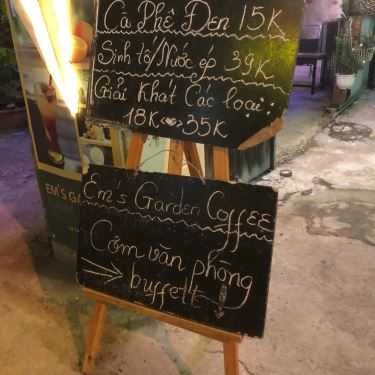 Cà Phê Đen 15K
Sinh tố/Nước ép 39K
Giải Khát Các loại:
18K 35K
Em's Garden Coffee
Cơm văn phòng
buffett
EM'S GA